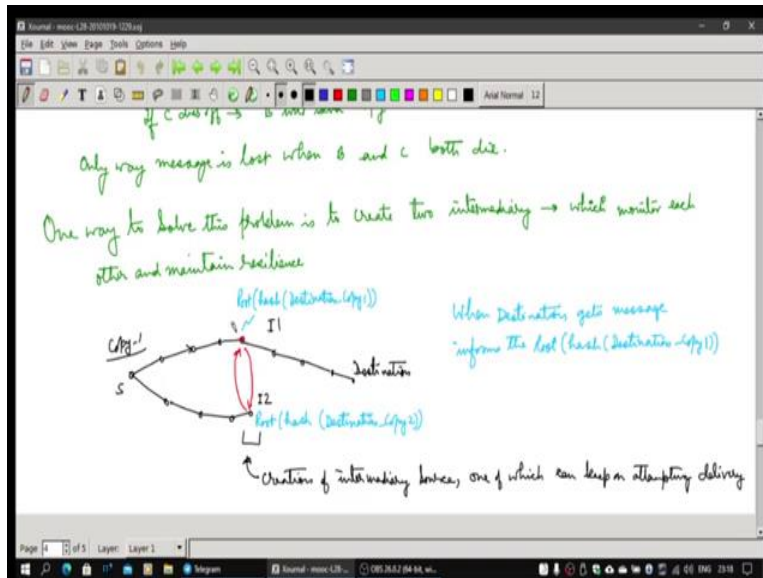 Xournal - mooc-L28-20201019-1229.xoj
File Edit View Page Tools Options Help
Arial Normal 12
If C dies off → B will
Only way message is lost when B and C both die.
One way to solve this problem is to create two intermediary → which monitor each
other and maintain resilience
Root(hash(Destination_Copy1))
I1
Copy-1
S
Destination
I2
Root(hash(Destination_Copy2))
When Destination gets message
informs the Root(hash(Destination_Copy1))
Creation of intermediary source, one of which can keep on attempting delivery
Page 4 of 5 Layer: Layer 1
Telegram
Xournal - mooc-L28-...
OBS 26.0.2 (64-bit, wi...
ENG 23:18